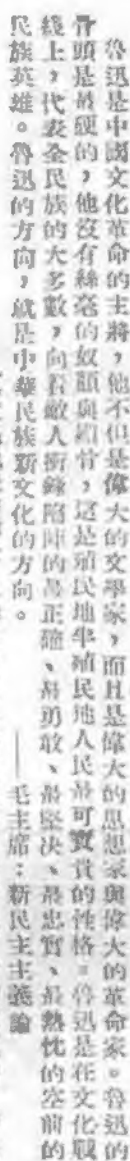 魯迅是中國文化革命的主將，他不但是偉大的文學家，而且是偉大的思想家與偉大的革命家。魯迅的
骨頭是最硬的，他沒有絲毫的奴顏與媚骨，這是殖民地半殖民地人民最可寶貴的性格。魯迅是在文化戰
綫上，代表全民族的大多數，向着敵人衝鋒陷陣的最正確、最勇敢、最堅决、最忠實、最熱忱的空前的
民族英雄。魯迅的方向，就是中華民族新文化的方向。
——毛主席：新民主主義論